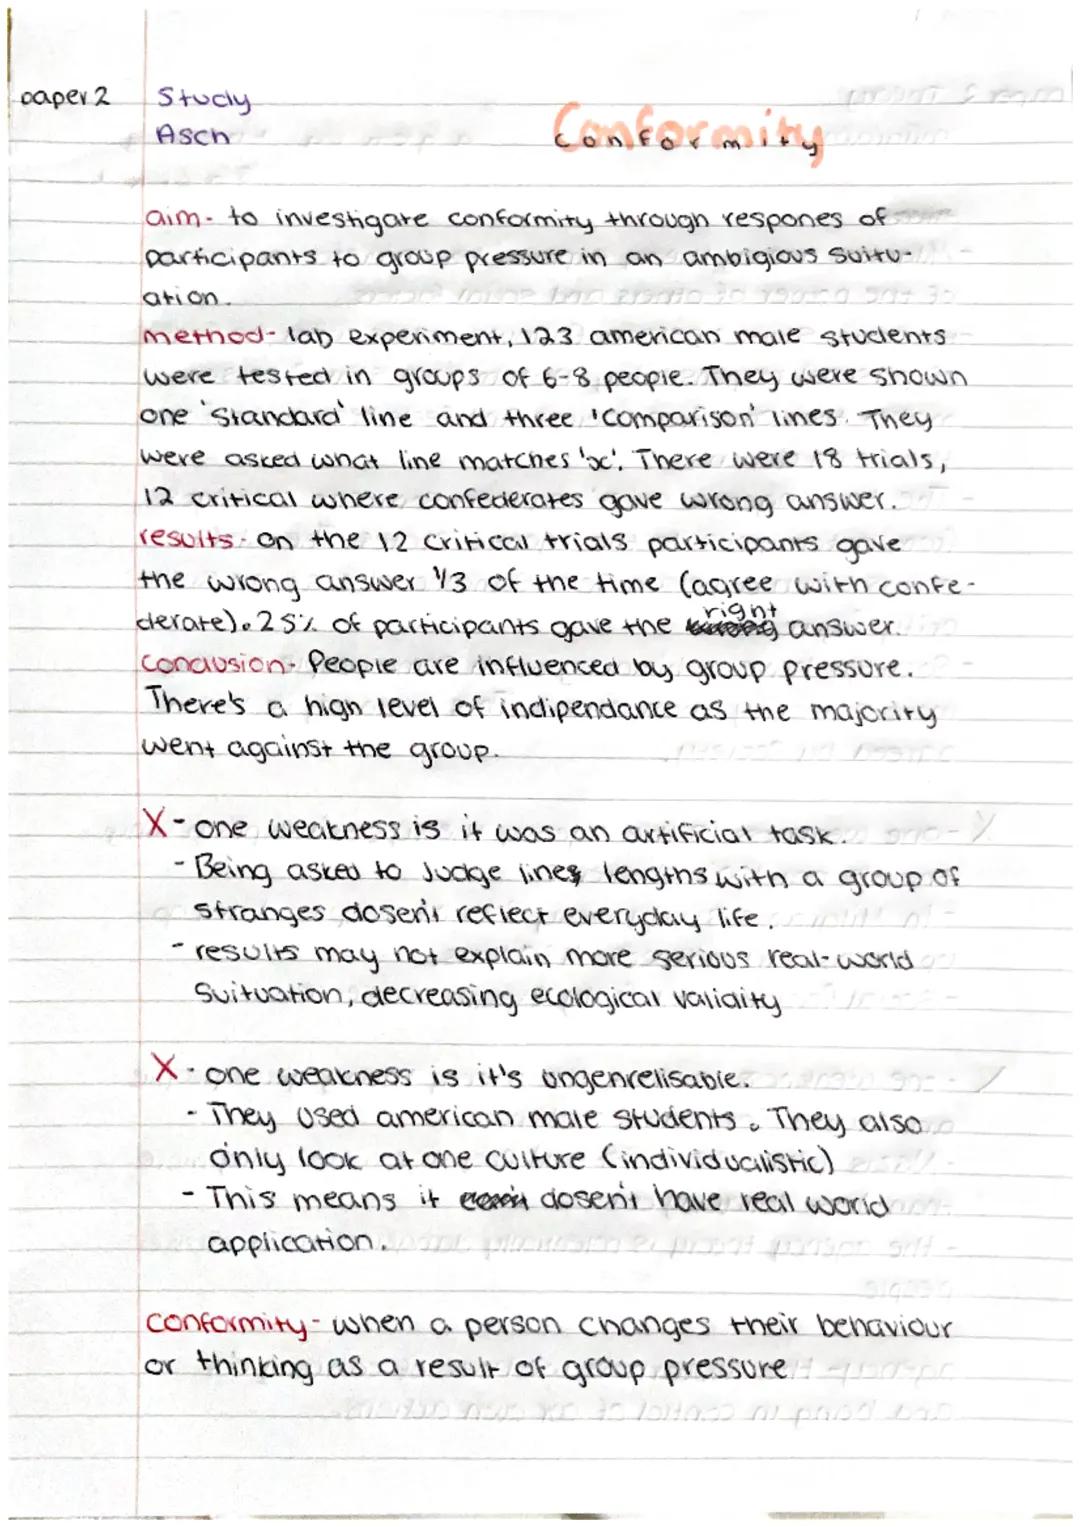 paper 2 Study
Asch
Conformity
aim- to investigate conformity through respones of
participants to group pressure in an ambigious suitu-
ation.
method- lab experiment, 123 american male students
were tested in groups of 6-8 people. They were shown
one 'standard' line and three 'comparison' lines. They
were asked what line matches 'x'. There were 18 trials,
12 critical where confederates gave wrong answer.
results- on the 12 critical trials participants gave
the wrong answer 1/3 of the time (agree with confe-
derate). 25% of participants gave the right answer.
conclusion- People are influenced by group pressure.
There's a high level of indipendance as the majority
went against the group.
X - one weakness is it was an artificial task.
- Being asked to judge lines lengths with a group of
stranges dosen't reflect everyday life.
- results may not explain more serious real-world
suituation, decreasing ecological validity
X - one weakness is it's ungenrelisable.
- They used american male students. They also
only look at one culture (individualistic)
- This means it dosen't have real world
application.
conformity- when a person changes their behaviour
or thinking as a result of group pressure